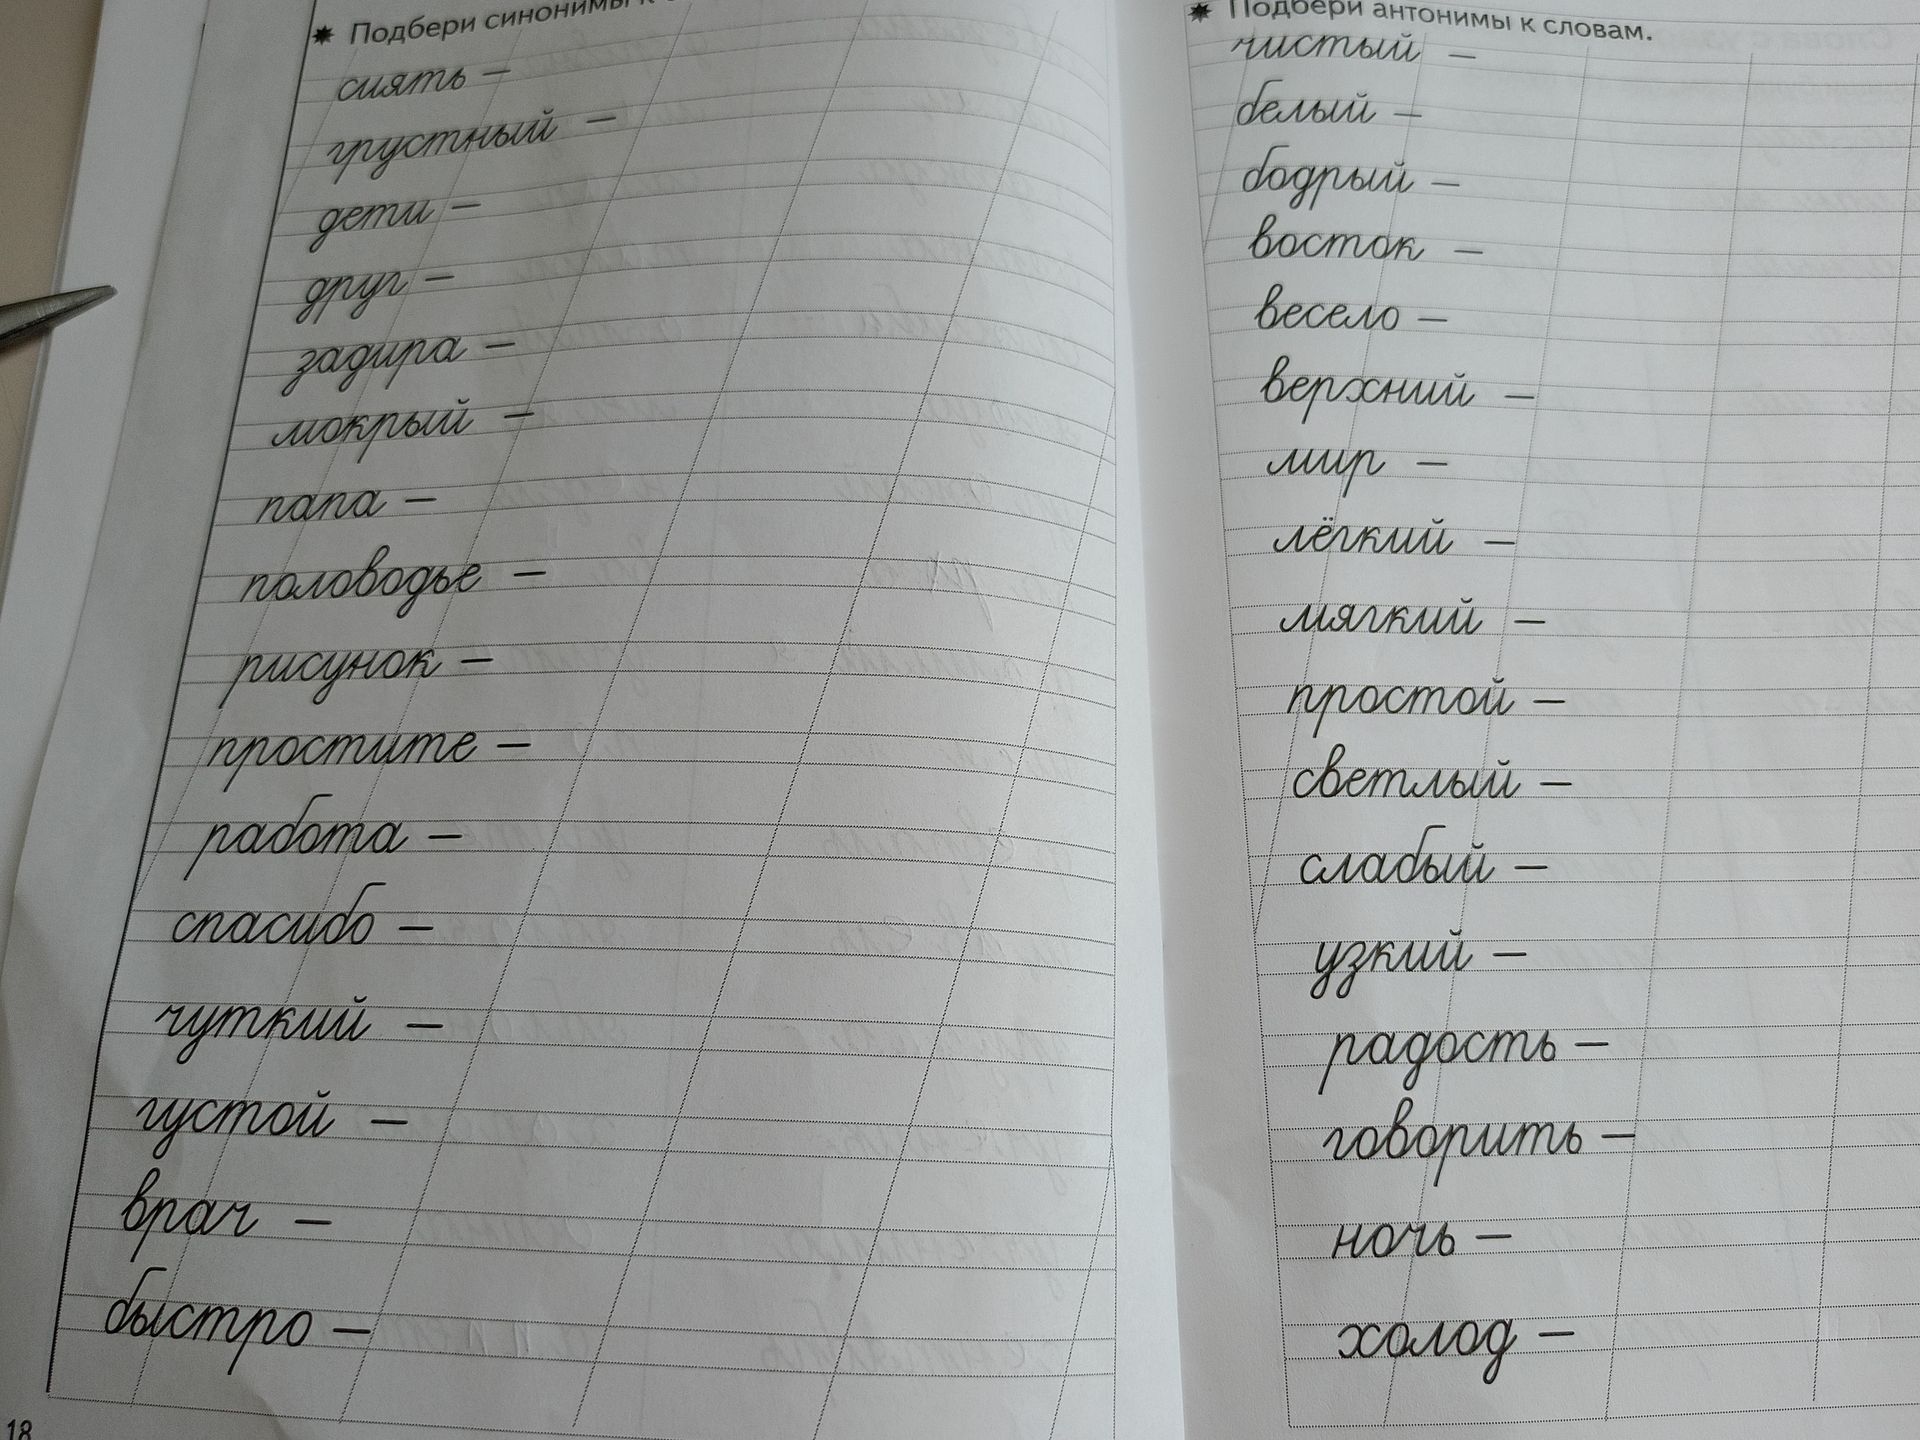 Подбери синонимы к
сиять –
грустный –
дети –
друг –
задира –
мокрый –
папа –
половодье –
рисунок –
простите –
работа –
спасибо –
чуткий –
густой –
врач –
быстро –
18
Подбери антонимы к словам.
чистый –
белый –
бодрый –
восток –
весело –
верхний –
мир –
лёгкий –
мягкий –
простой –
светлый –
слабый –
узкий –
радость –
говорить –
ночь –
холод –